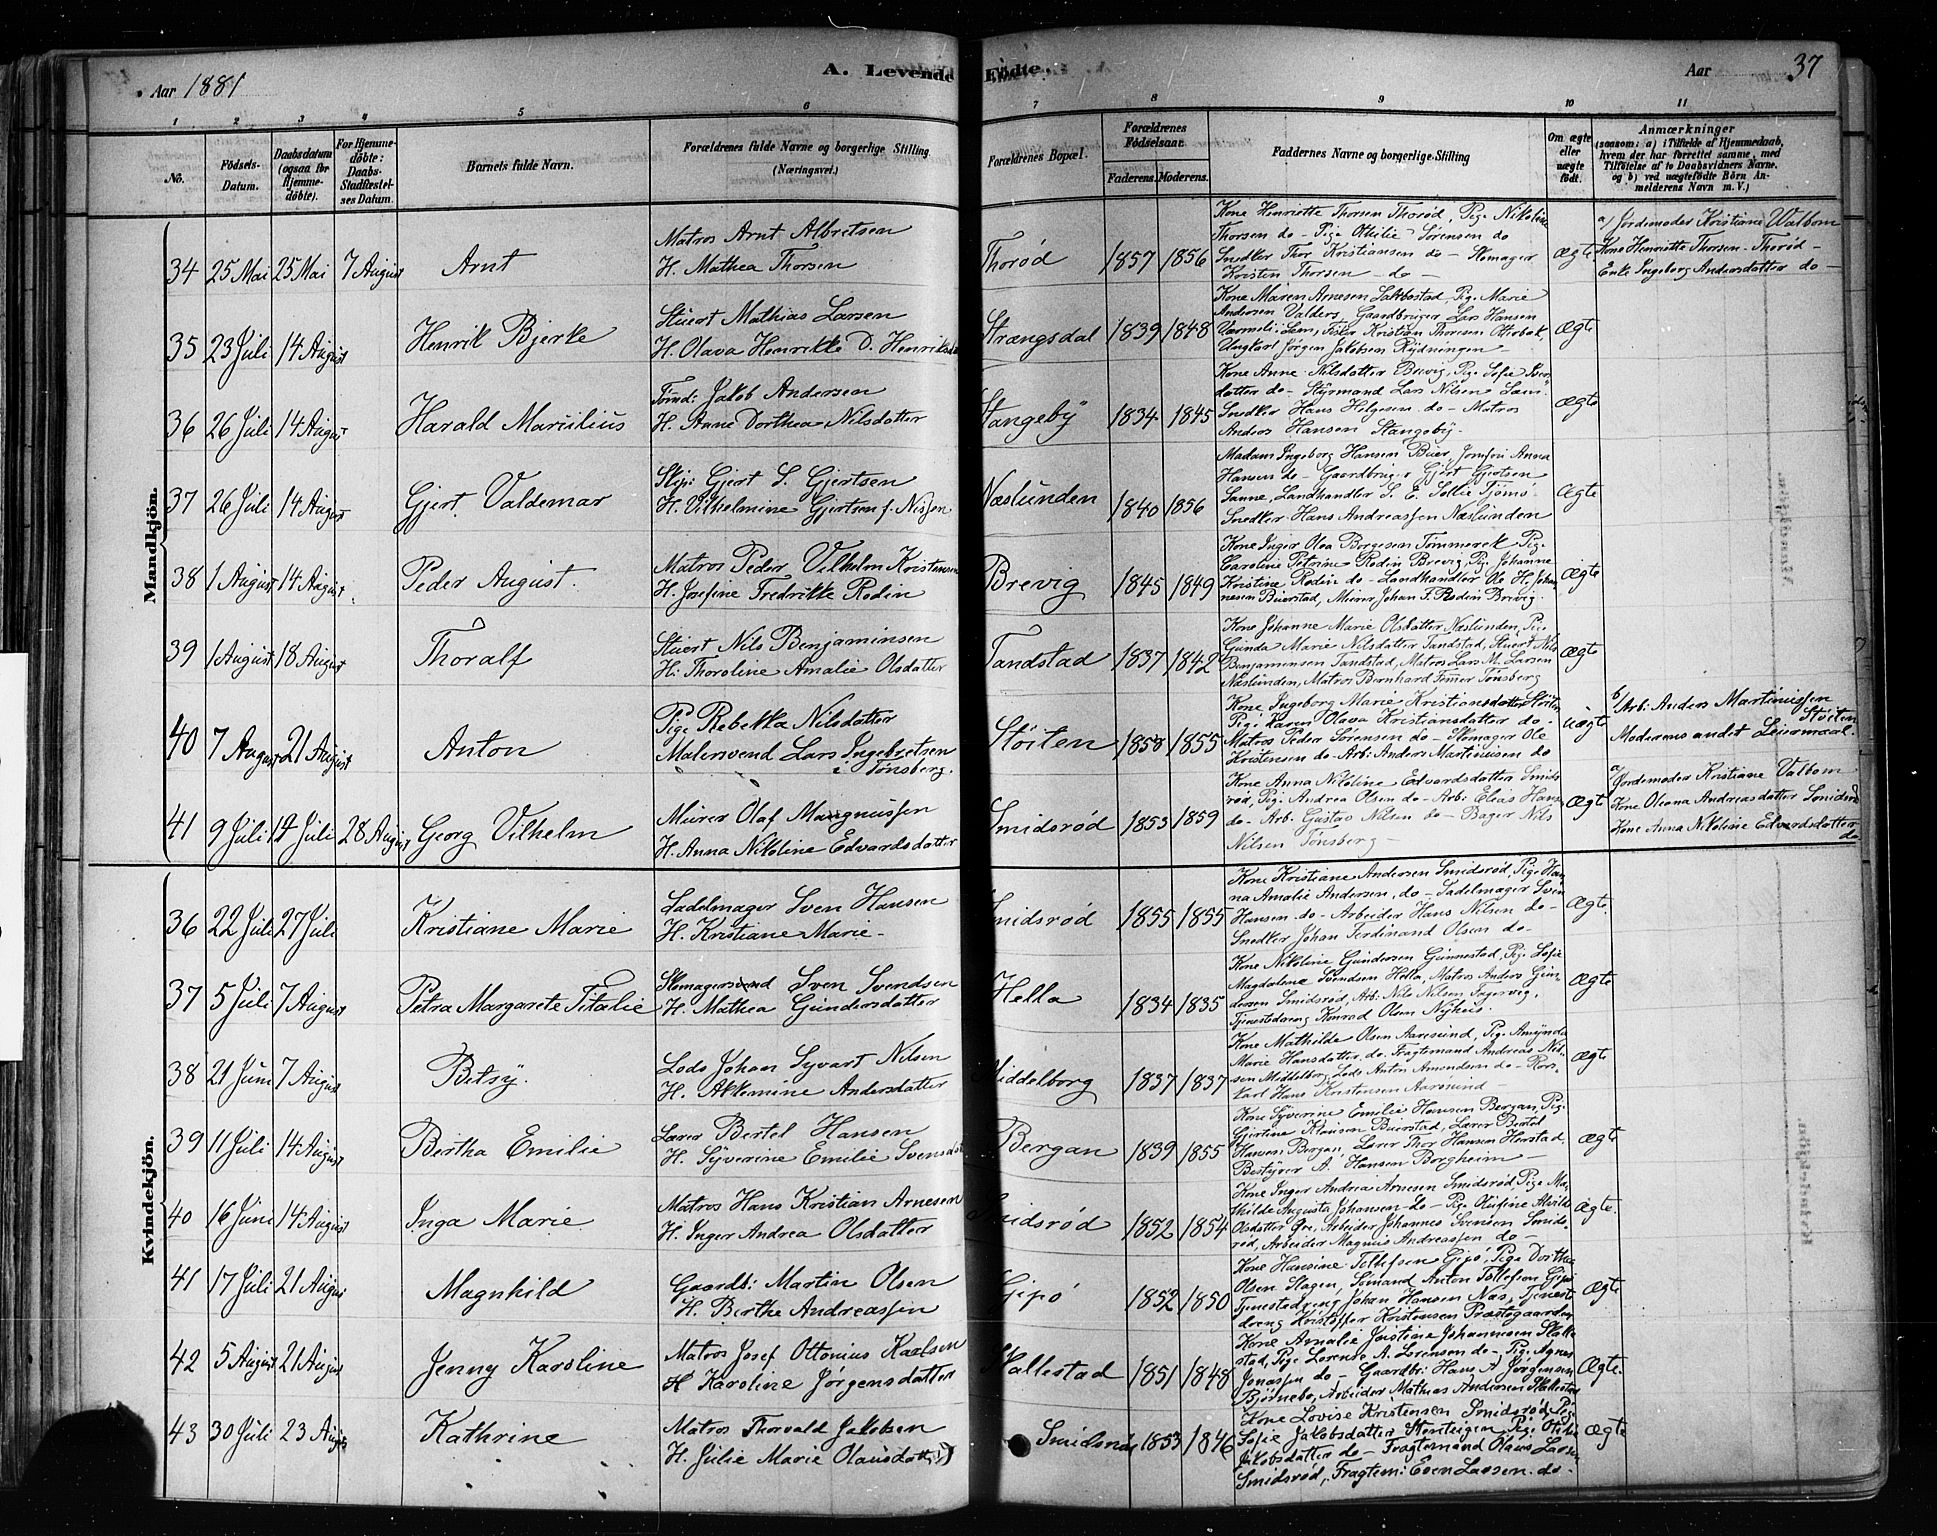 Aar 1881
A. Levende Födte.
Aar 37
1 2 3 4 5 6 7 8 9 10 11
No.
Födsels-Datum.
Daabsdatum (ogsaa for Hjemme-döbte).
For Hjemme-döbte: Daabs-Stadfæstel-ses Datum.
Barnets fulde Navn.
Forældrenes fulde Navne og borgerlige Stilling (Næringsvei.)
Forældrenes Bopæl.
Forældrenes Födselsaar.
Faderens. Moderens.
Faddernes Navne og borgerlige Stilling
Om ægte eller uægte födt.
Anmærkninger
(saasom: a) i Tilfælde af Hjemmedaab, hvem der har forrettet samme, med Tilföielse af to Daabsvidners Navne. og b) ved uægtefödte Börn An-melderens Navn m. V.)
Mandkjön.
34 25 Mai 25 Mai 7 August Arnt
Matros Arnt Albretsen
H. Mathea Thorsen
Thorød 1857 1856
Kone Henriette Thorsen Thorød, Pige Nikoline
Thorsen do - Pige Ottilie Sørensen do
Snedker Thor Kristiansen do - Skomager
Kristen Thorsen - do -
Ægte
a) Jordemoder Kristiane Valbom
Kone Henriette Thorsen - Thorød -
Enke Ingeborg Andersdatter do -
35 23 Juli 14 August Henrik Bjerke
Stuert Mathias Larsen
H. Olava Henrikke D. Henriks
Strængsdal 1839 1848
Kone Maren Arnesen Saltbostad, Pige Marie
Andersen Valders, Gaardbruger Lars Hansen
Sem, Fisker Kristian Thoresen
Ungkarl Jørgen Jakobsen Rydningen -
Ægte
36 26 Juli 14 August Harald Marulius
Tømd: Jakob Andersen
H. Anne Dorthea Nilsdatter
Stangeby 1834 1845
Kone Anne Nilsdatter Brevig, Pige Sofie
datter do - Styrmand Lars Nilsen Sem
Snedker Hans Helgesen do - Matros
Anders Hansen Stangeby -
Ægte
37 26 Juli 14 August Gjert Valdemar
Skip: Gjert S. Gjertsen
H. Vilhelmine Gjertsen f. Nissen
Næslunden 1840 1856
Madam Ingeborg Hansen Buer, Jomfru Anna
Hansen do - Gaardbruger Gjert Gjertsen
Sanne, Landhandler S. E. Sollie Tjømø
Snedker Hans Andreassen Næslunden
Ægte
38 1 August 14 August Peder August.
Matros Peder Vilhelm Kristensen
H. Josefine Fredrikke Rodin
Brevig 1845 1849
Kone Inger Olea Borgesen Tømmerek Pige
Caroline Petrine Rodin Brevig, Pige Johanne
Kristine Rodin do - Landhandler Ole H. Johan-
nesen Buerstad, Murer Johan F. Rodin Brevig.
Ægte
39 1 August 18 August Thoralf
Stuert Nils Benjaminsen
H. Thoroline Amalie Olsdatter
Tandstad 1837 1842
Kone Johanne Marie Olsdatter Næslunden, Pige
Gunda Marie Nilsdatter Tandstad, Stuert Nils
Benjaminsen Tandstad, Matros Lars M. Larsen
Næslunden, Matros Bernhard Tønsberg
Ægte
40 7 August 21 August Anton
Pige Rebekka Nilsdatter
Malersvend Lars Ingebretsen
i Tønsberg.
Støiten 1858 1855
Kone Ingeborg Marie Kristiansdatter Støiten
Pige Karen Olava Kristiansdatter do -
Matros Peder Sørensen do - Skomager Ole
Kristensen do - Arb: Anders Martinusen do
uægte
b) Arb: Anders Martinussen
Støiten
Moderens andet Leiermaal.
41 9 Juli 12 Juli 28 August Georg Vilhelm
Murer Olaf Magnussen
H. Anna Nikoline Edvardsdatter
Smidsrød 1853 1859
Kone Anna Nikoline Edvardsdatter Smids
rød, Pige Andrea Olsen do - Arb: Elias Hansen
do - Arb: Gustav Nilsen do - Bager Nils
Nilsen Tønsberg -
Ægte
a) Jordemoder Kristiane Valbom
Kone Oleana Andreasdatter Smidsrød
Kone Anna Nikoline Edvardsdatter
do
Kvindekjön.
36 22 Juli 27 Juli Kristiane Marie
Sadelmager Sven Hansen
H. Kristiane Marie -
Smidsrød 1855 1855
Kone Kristiane Andersen Smidsrød, Pige Han-
na Amalie Andersen, do - Sadelmager Sven
Hansen do - Arbeider Hans Nilsen do -
Snedker Johan Ferdinand Olsen do -
Ægte.
37 5 Juli 7 August Petra Margarete Titalie
Skomagersvend Sven Svendsen
H. Mathea Gundersdatter
Hella 1834 1835
Kone Nikoline Gundersen Gunnestad, Pige Sofie
Magdalene Svendsen Hella, Matros Anders Gun-
dersen Smidsrød, Arb: Nils Nilsen Fagervig,
Tjenestedreng Konrad Olsen Nyhus.
Ægte
38 21 Juni 7 August Betsy.
Lods Johan Syvart Nilsen
H. Akkemine Andersdatter
Middelborg 1837 1837
Kone Mathilde Olsen Aarøsund, Pige Amynda
Marie Hansdatter do. Fragtemand Andreas Nil-
sen Middelborg Lods Anton Amundsen do -
karl Hans Kristensen Aarøsund -
Ægte
39 11 Juli 14 August Bertha Emilie
Lærer Bertel Hansen
H. Syverine Emilie Svensdat
Bergan 1839 1855
Kone Syverine Emilie Hansen Bergan, Pige
Gjertine Klausen Buerstad, Lærer Bertel
Hansen Bergan, Lærer Thor Hansen Herstad,
Bestyrer A. Hansen Borgheim -
Ægte
40 16 Juni 14 August Inga Marie
Matros Hans Kristian Arnesen
H. Inger Andrea Olsdatter
Smidsrød 1852 1854
Kone Inger Andrea Arnesen Smidsrød Pige Ma-
thilde Augusta Johansen do - Pige Rufine Alvilde
Olsdatter Øre, Arbeider Johannes Svensen Smids-
rød, Arbeider Magnus Andreassen do -
Ægte.
41 17 Juli 21 August Magnhild
Gaardb: Martin Olsen
H. Berthe Andreassen
Gipø 1852 1850
Kone Hansine Tollefsen Gipø, Pige Dorthea
Olsen Slagen, Sømand Anton Tollefsen Gipø
Tjenestedreng Johan Hansen Næs, Tjeneste
dreng Kristoffer Kristensen Præstegaarden
Ægte
42 5 August 21 August Jenny Karoline
Matros Josef Ottonius Karlsen
H Karoline Jørgensdatter
Skallestad 1851 1848
Kone Amalie Justine Johannesen Skalle
stad, Pige Lorense A. Lorensen do - Pige Agnes
Jonassen do - Gaardbr: Hans A Jørgensen
Bjørnebo, Arbeider Mathias Andersen Skallestad
Ægte.
43 30 Juli 23 August Kathrine
Matros Thorvald Jakobsen
H. Julie Marie Olausdatter
Smidsrød 1853 1846
Kone Lovise Kristensen Smidsrød Pige
Sofie Jakobsdatter Stensteigen Pige
Jakobsdatter do - Fragtemand Olaus Larsen
Smidsrød, Fragtem: Even Larsen. do -
Ægte